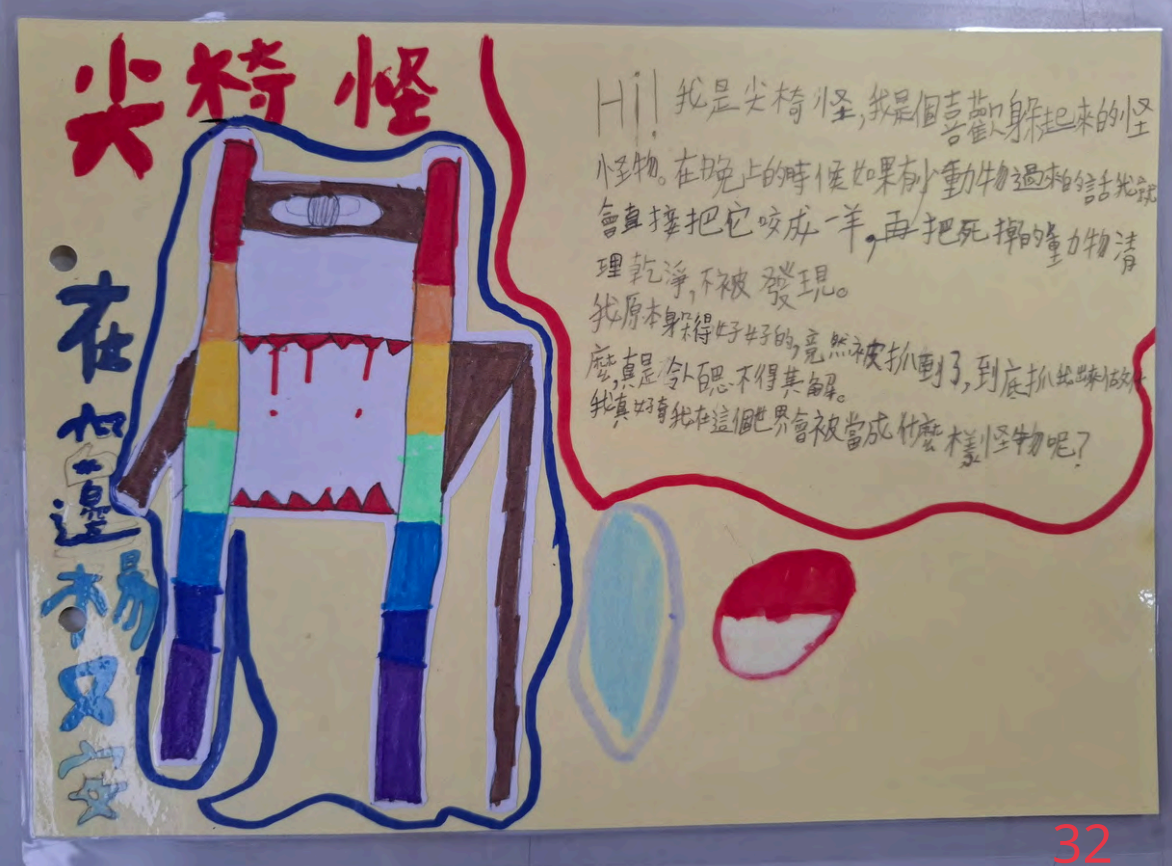 尖椅怪
Hi! 我是尖椅怪,我是個喜歡躲起來的怪
怪物。在晚上的時候如果有小動物過來的話我就
會直接把它咬成一半,再把死掉的動物清
理乾淨,不被發現。
我原本躲得好好的,竟然被抓到了,到底抓我出來做什
麼,真是令人百思不得其解。
我真好奇我在這個世界會被當成什麼樣怪物呢?
在你邊
楊又安
32